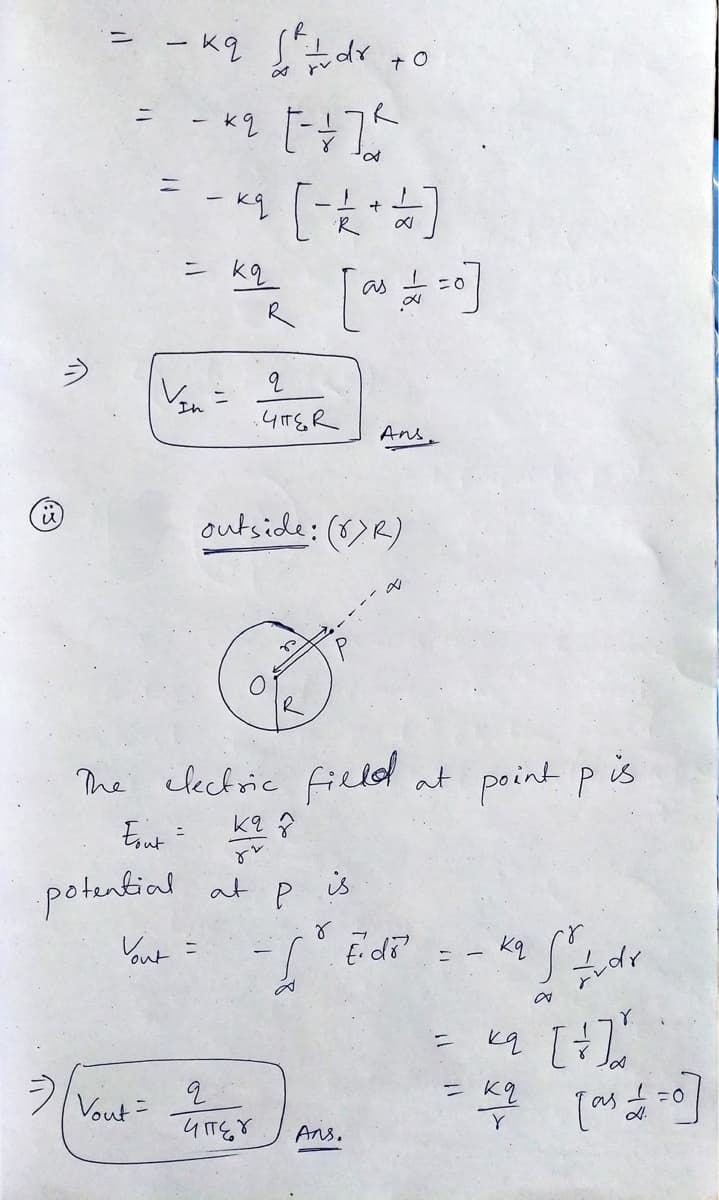 = - kq ∫_∞^R 1/r² dr + 0
= - kq [-1/r]_∞^R
= - kq [-1/R + 1/∞]
= kq/R [as 1/∞ = 0]
⇒ V_In = q/4πε₀R Ans.
(ii) outside: (r>R)
∞
r P
O
R
The electric field at point p is
E_out = kq/r² r̂
potential at p is
V_out = - ∫_∞^r E⃗.dr⃗ = - kq ∫_∞^r 1/r² dr
= kq [1/r]_∞^r
= kq/r [as 1/∞ = 0]
⇒ V_out = q/4πε₀r Ans.